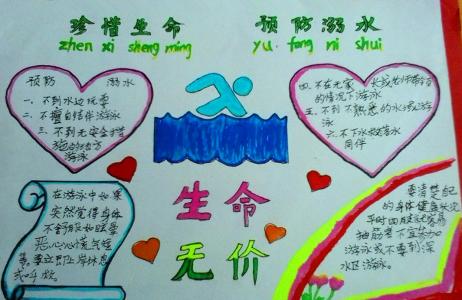 珍惜生命
预防溺水
zhen xi sheng ming
yu fang ni shui
预防 溺水
一、不到水边玩耍
二、不擅自结伴游泳
三、不到无安全措
施的地方
游泳
四、不在无家长或老师带领
的情况下游泳
五、不到不熟悉的水域游
泳
六、不下水救落水
同伴
生命
无价
在游泳中如果
突然觉得身体
不舒服如眩晕
恶心心慌气短
等要立即上岸休息
或呼救
要清楚自己
的身体健康状况
平时四肢容易
抽筋者不宜参加
游泳或不要到深
水区游泳。